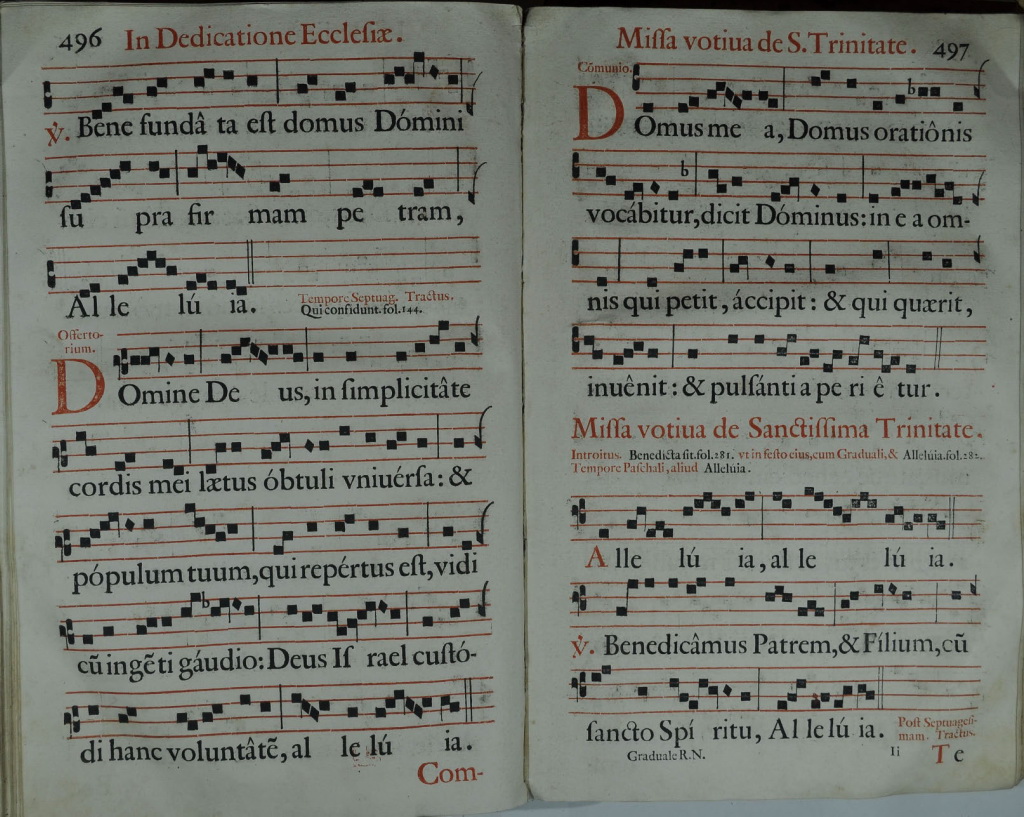 496 In Dedicatione Ecclesiæ.
℣. Bene fundâ ta est domus Dómini
su pra fir mam pe tram,
Al le lú ia.
Tempore Septuag. Tractus.
Qui confidunt. fol. 144.
Offerto-
rium.
DOmine De us, in simplicitâte
cordis mei lætus óbtuli vniuérsa: &
pópulum tuum, qui repértus est, vidi
cũ ingẽti gáudio: Deus Is rael custó-
di hanc voluntâtẽ, al le lú ia.
Com-
Missa votiua de S. Trinitate. 497
Cõmunio.
DOmus me a, Domus oratiônis
vocábitur, dicit Dóminus: in e a om-
nis qui petit, áccipit: & qui quærit,
inuênit: & pulsánti a pe ri ê tur.
Missa votiua de Sanctissima Trinitate.
Introitus. Benedicta sit. fol. 281. vt in festo eius, cum Graduali, & Alleluia. fol. 282.
Tempore Paschali, aliud Alleluia.
A lle lú ia, al le lú ia.
℣. Benedicâmus Patrem, & Fílium, cũ
sancto Spí ritu, Al le lú ia.
Post Septuagesi-
mam. Tractus.
Graduale R.N. Ii Te